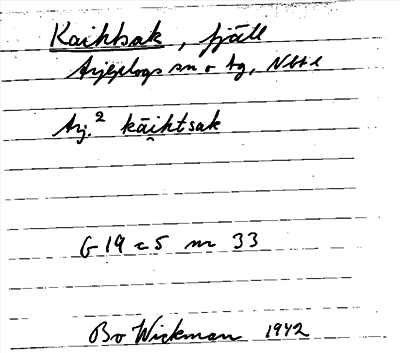 Kaihtsak, fjäll
Arjeplogs sn o tg, Nbtl
Arj.² kāi̭htsak
G 19 c 5 nr 33
Bo Wickman 1942